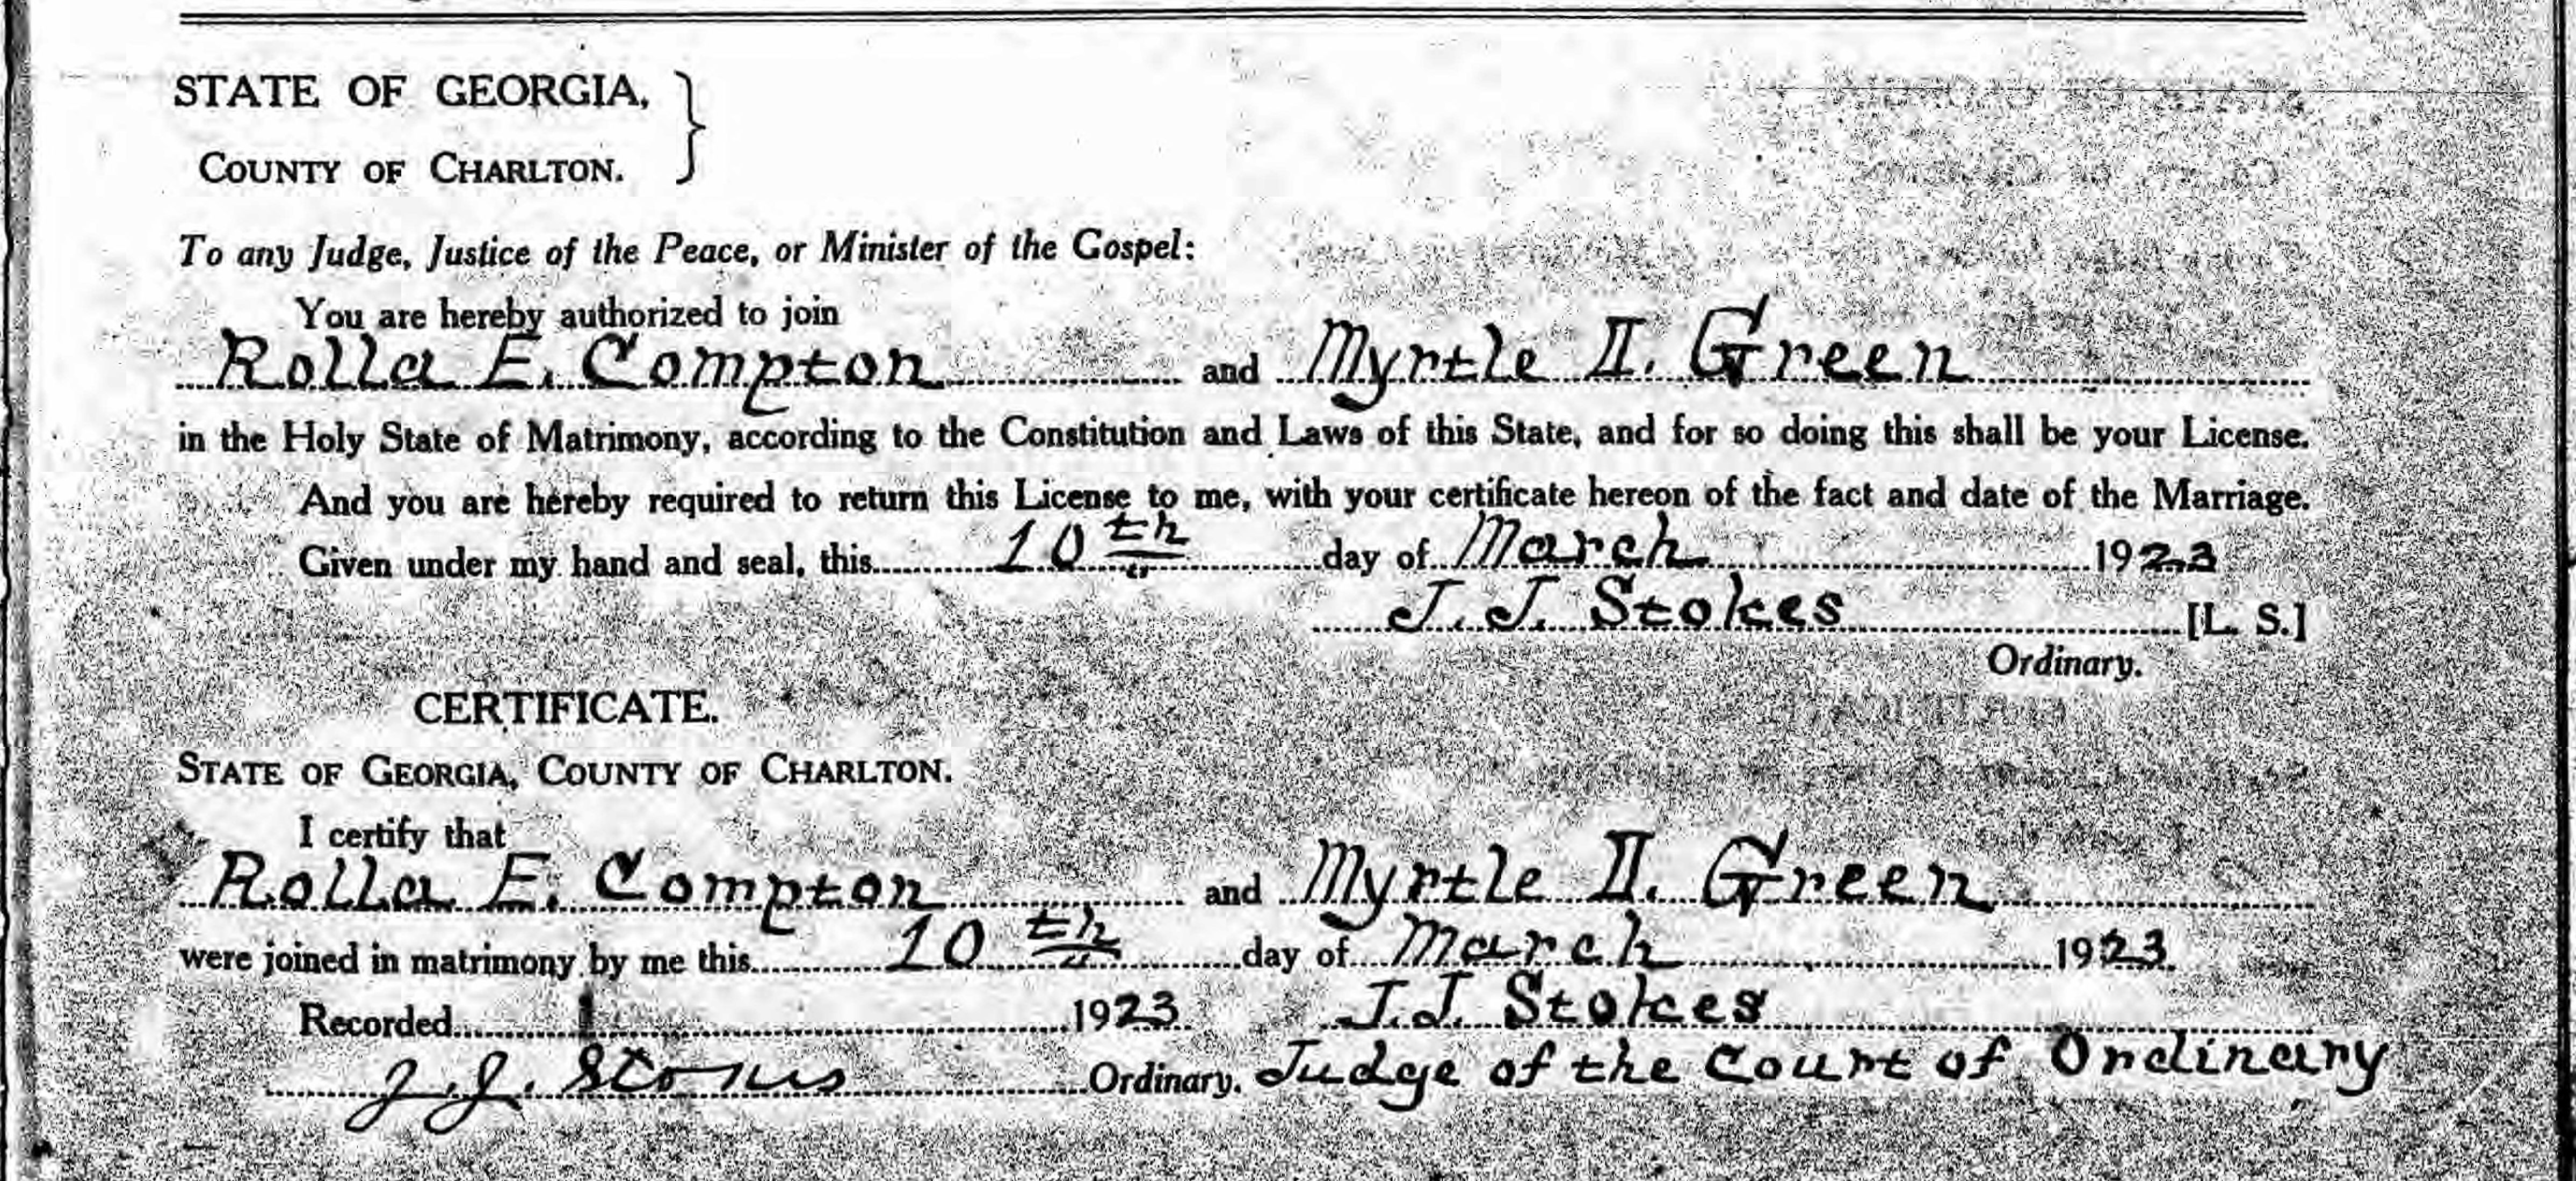 STATE OF GEORGIA,
COUNTY OF CHARLTON.
To any Judge, Justice of the Peace, or Minister of the Gospel:
You are hereby authorized to join
Rolla E. Compton and Myrtle II. Green
in the Holy State of Matrimony, according to the Constitution and Laws of this State, and for so doing this shall be your License.
And you are hereby required to return this License to me, with your certificate hereon of the fact and date of the Marriage.
Given under my hand and seal, this 10th day of March 1923
J. J. Stokes [L. S.]
Ordinary.
CERTIFICATE.
STATE OF GEORGIA, COUNTY OF CHARLTON.
I certify that
Rolla E. Compton and Myrtle II. Green
were joined in matrimony by me this 10th day of March 1923
Recorded 1923 J. J. Stokes
J. J. Stokes Ordinary. Judge of the Court of Ordinary